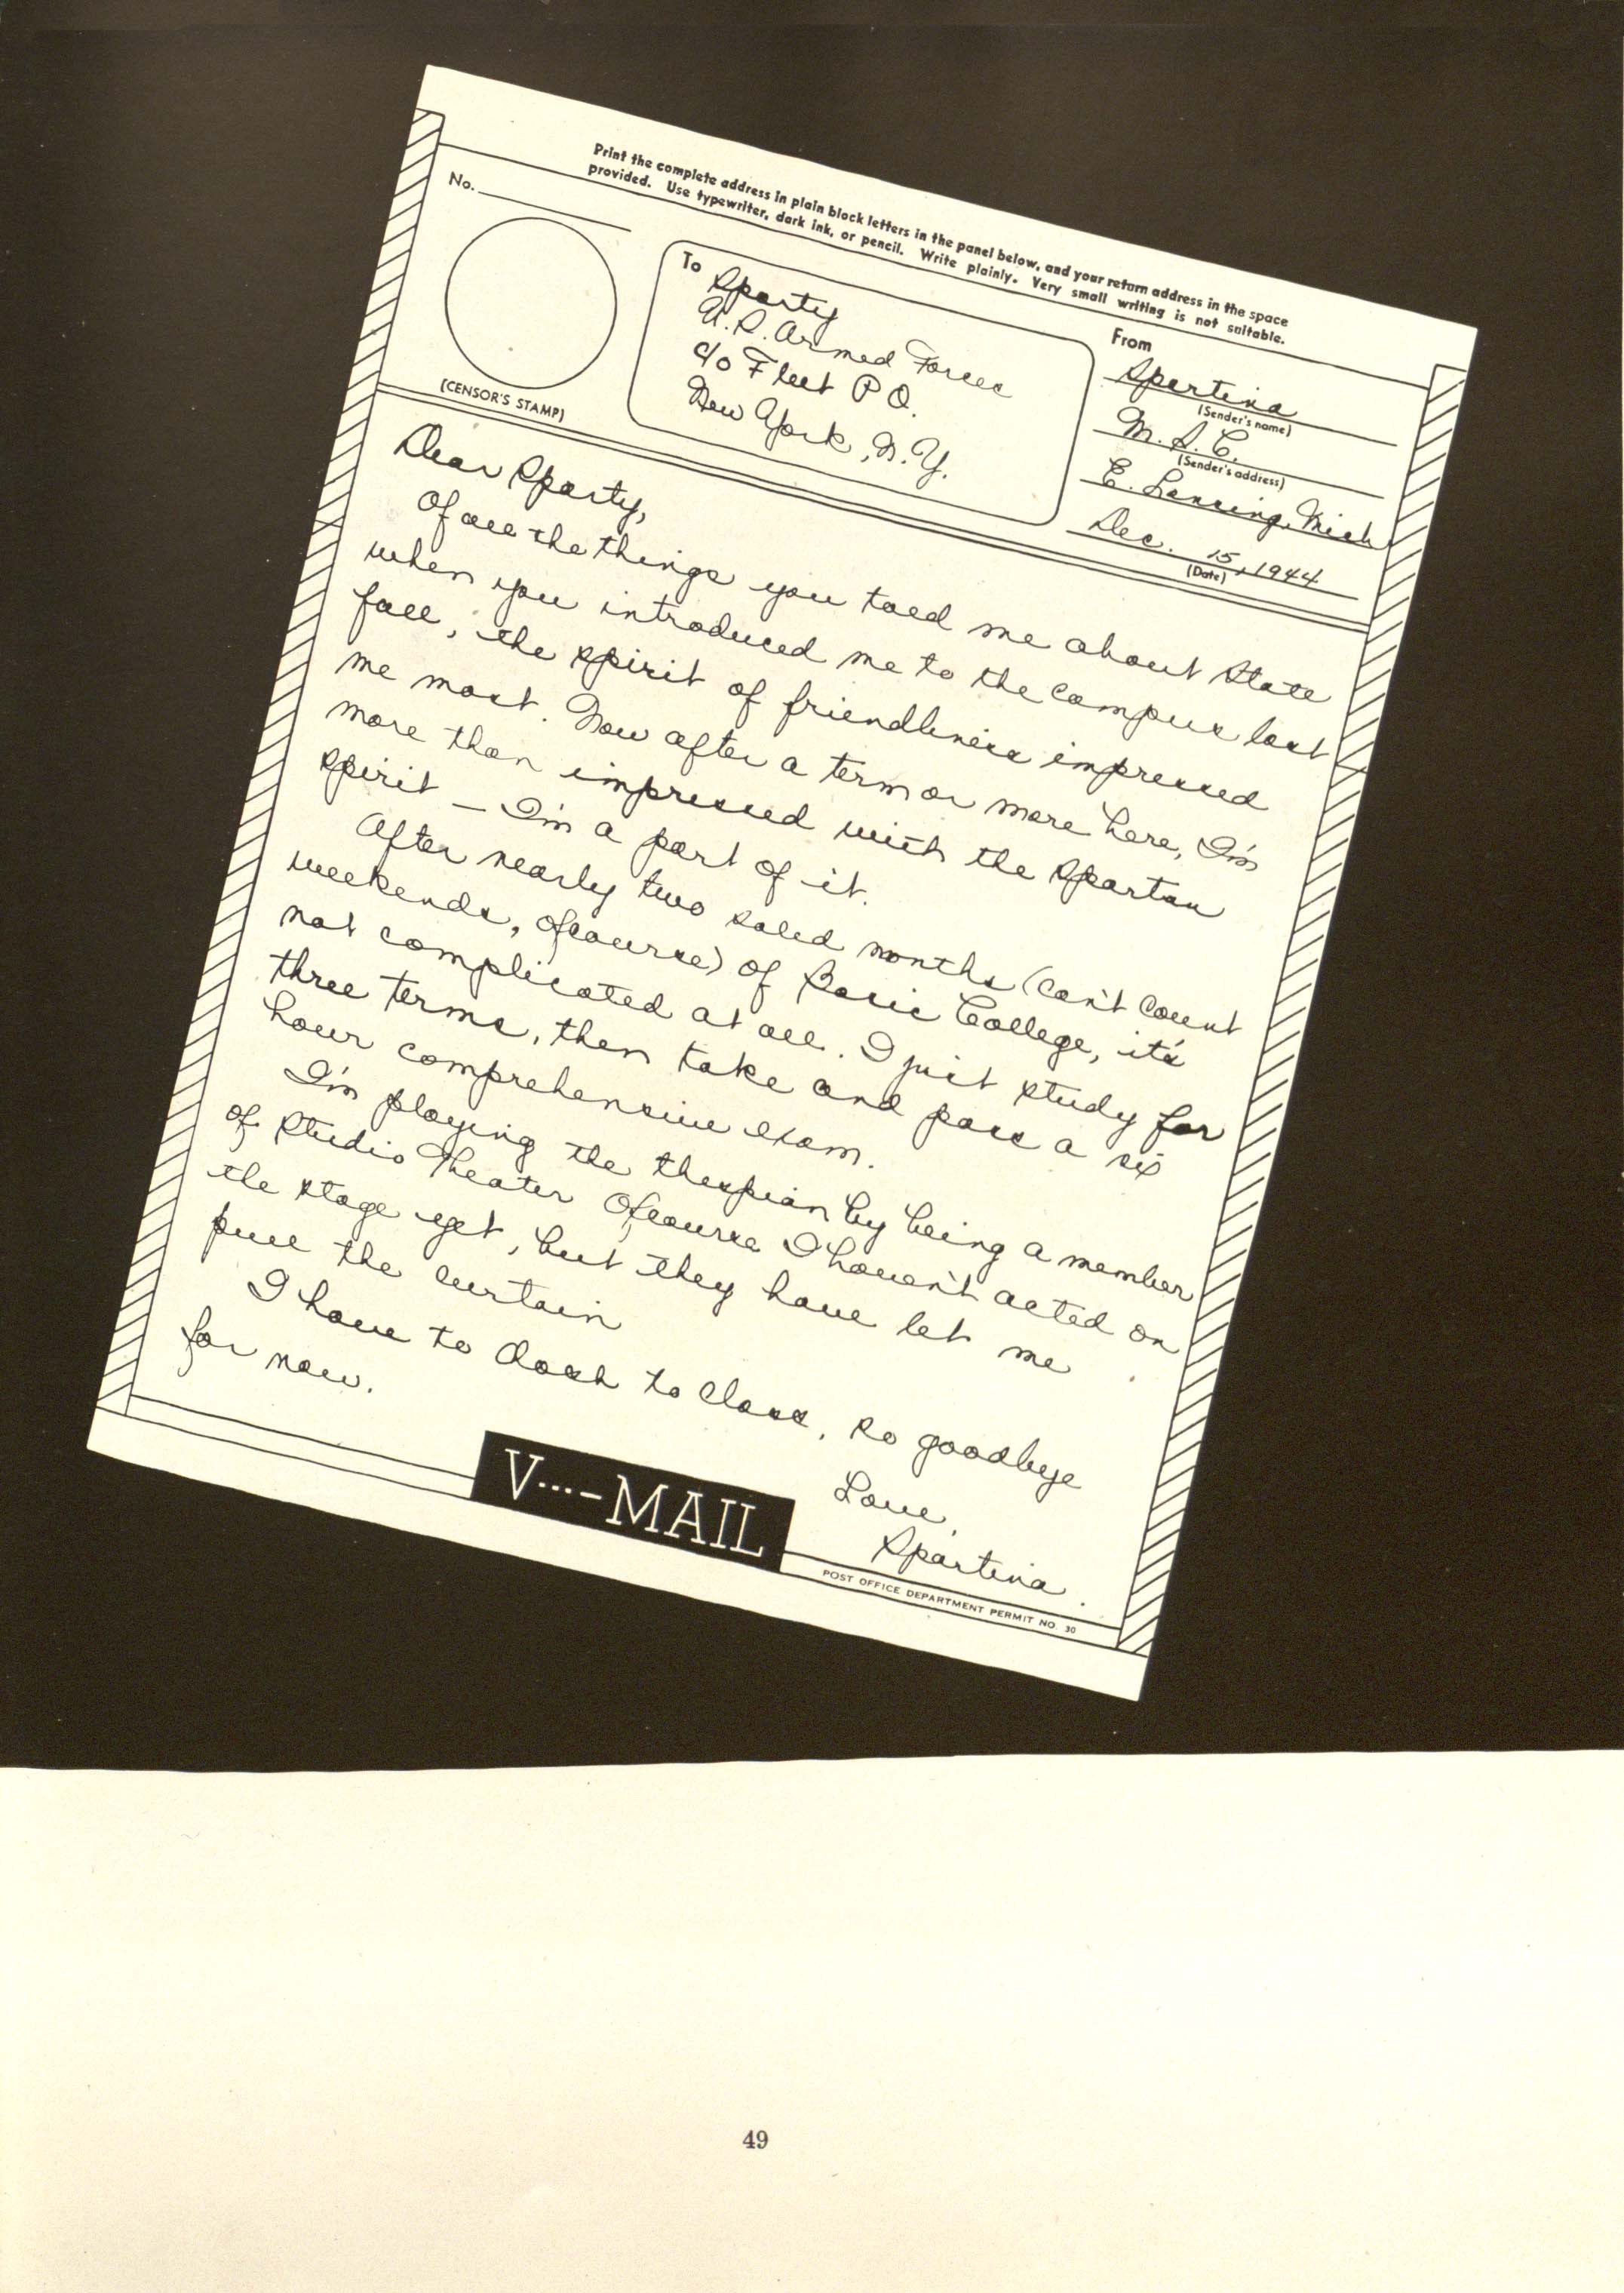 Print the complete address in plain block letters in the panel below, and your return address in the space
provided. Use typewriter, dark ink, or pencil. Write plainly. Very small writing is not suitable.
No.
(CENSOR'S STAMP)
To
Sparty
U.S. Armed Forces
c/o Fleet P O.
New York, N.Y.
From
Spartina
(Sender's name)
M. S. C.
(Sender's address)
E. Lansing, Mich
Dec. 15, 1944
(Date)
Dear Sparty,
Of all the things you told me about State
when you introduced me to the campus last
fall, the spirit of friendliness impressed
me most. Now after a term or more here, I'm
more than impressed with the Spartan
spirit — I'm a part of it.
After nearly two solid months (can't count
weekends, ofcourse) of Basic College, it's
not complicated at all. I just study for
three terms, then take and pass a six
hour comprehensive exam.
I'm playing the thespian by being a member
of Studio Theater Ofcourse I haven't acted on
the stage yet, but they have let me
pull the curtain
I have to dash to class, so goodbye
for now.
Love,
Spartina.
V···—MAIL
POST OFFICE DEPARTMENT PERMIT NO. 30
49